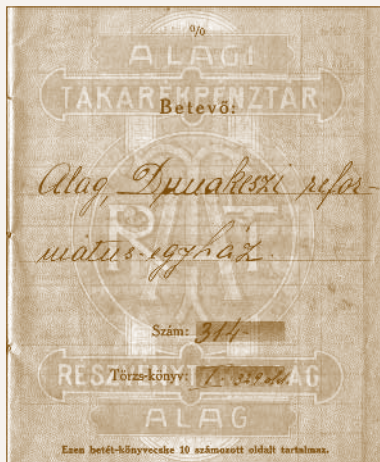 %
ALAGI
TAKARÉKPÉNZTÁR
Betevő:
Alag, Dunakeszi refor-
mátus-egyház.
Szám: 314-
Törzs-könyv: I.
ALAG
Ezen betét-könyvecske 10 számozott oldalt tartalmaz.